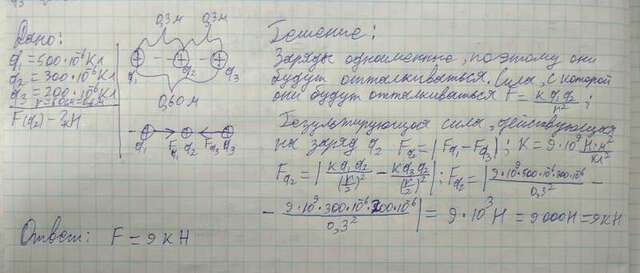 Дано:
q₁=500·10⁻⁶Кл
q₂=300·10⁻⁶Кл
q₃=200·10⁻⁶Кл
F(q₂) - ? Н
0,3м 0,3м
q₁ q₂ q₃
0,60м
q₁ F₁ q₂ F₃ q₃
Решение:
Заряды одноименные, поэтому они
будут отталкиваться. Сила, с которой
они будут отталкиваться F = kq₁q₂/r²;
Результирующая сила, действующая
на заряд q₂ F_q₂=|F_q₁-F_q₃|; K=9·10⁹ Н·м²/Кл²
F_q₂=|kq₁q₂/(r/2)² - kq₃q₂/(r/2)²|; F_q₂=|9·10⁹·500·10⁻⁶·300·10⁻⁶/0,3² -
- 9·10⁹·300·10⁻⁶·200·10⁻⁶/0,3²| = 9·10³Н = 9000Н = 9кН
Ответ: F = 9кН